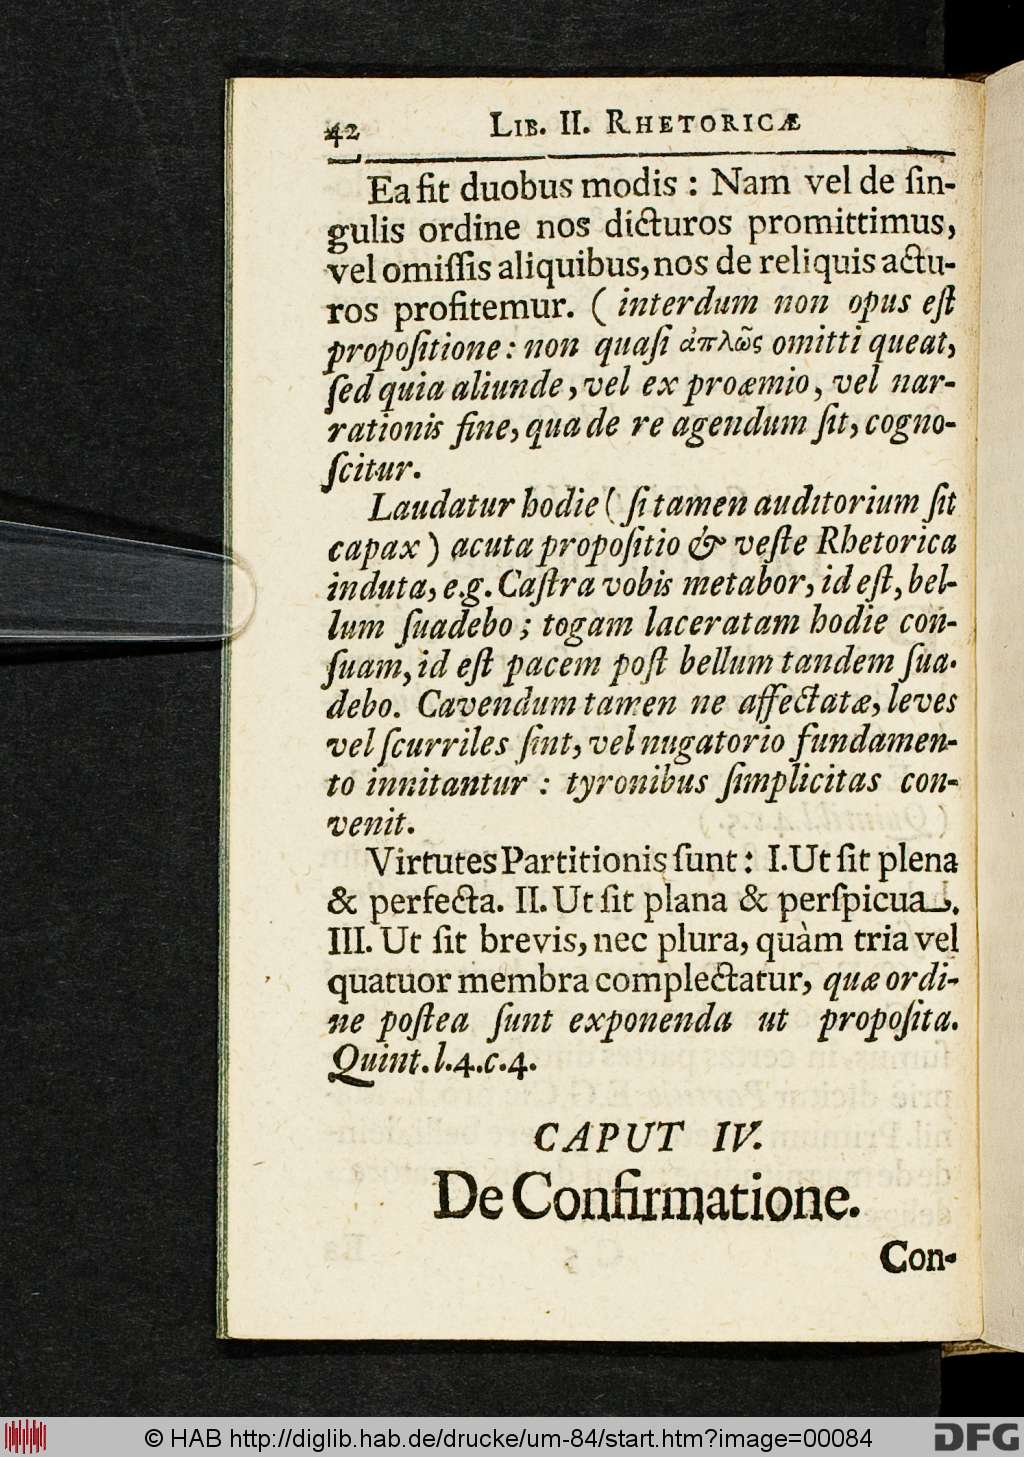 42 LIB. II. RHETORICÆ
Ea fit duobus modis : Nam vel de ſin-
gulis ordine nos dicturos promittimus,
vel omiſſis aliquibus, nos de reliquis actu-
ros profitemur. ( interdum non opus eſt
propoſitione : non quaſi ἁπλῶς omitti queat,
ſed quia aliunde, vel ex proæmio, vel nar-
rationis fine, qua de re agendum ſit, cogno-
ſcitur.
Laudatur hodie ( ſi tamen auditorium ſit
capax ) acuta propoſitio & veſte Rhetorica
induta, e.g. Caſtra vobis metabor, id eſt, bel-
lum ſuadebo ; togam laceratam hodie con-
ſuam, id eſt pacem poſt bellum tandem ſua-
debo. Cavendum tamen ne affectatæ, leves
vel ſcurriles ſint, vel nugatorio fundamen-
to innitantur : tyronibus ſimplicitas con-
venit.
Virtutes Partitionis ſunt : I. Ut ſit plena
& perfecta. II. Ut ſit plana & perſpicua.
III. Ut ſit brevis, nec plura, quàm tria vel
quatuor membra complectatur, quæ ordi-
ne poſtea ſunt exponenda ut propoſita.
Quint. l. 4. c. 4.
CAPUT IV.
De Confirmatione.
Con-
© HAB http://diglib.hab.de/drucke/um-84/start.htm?image=00084
DFG